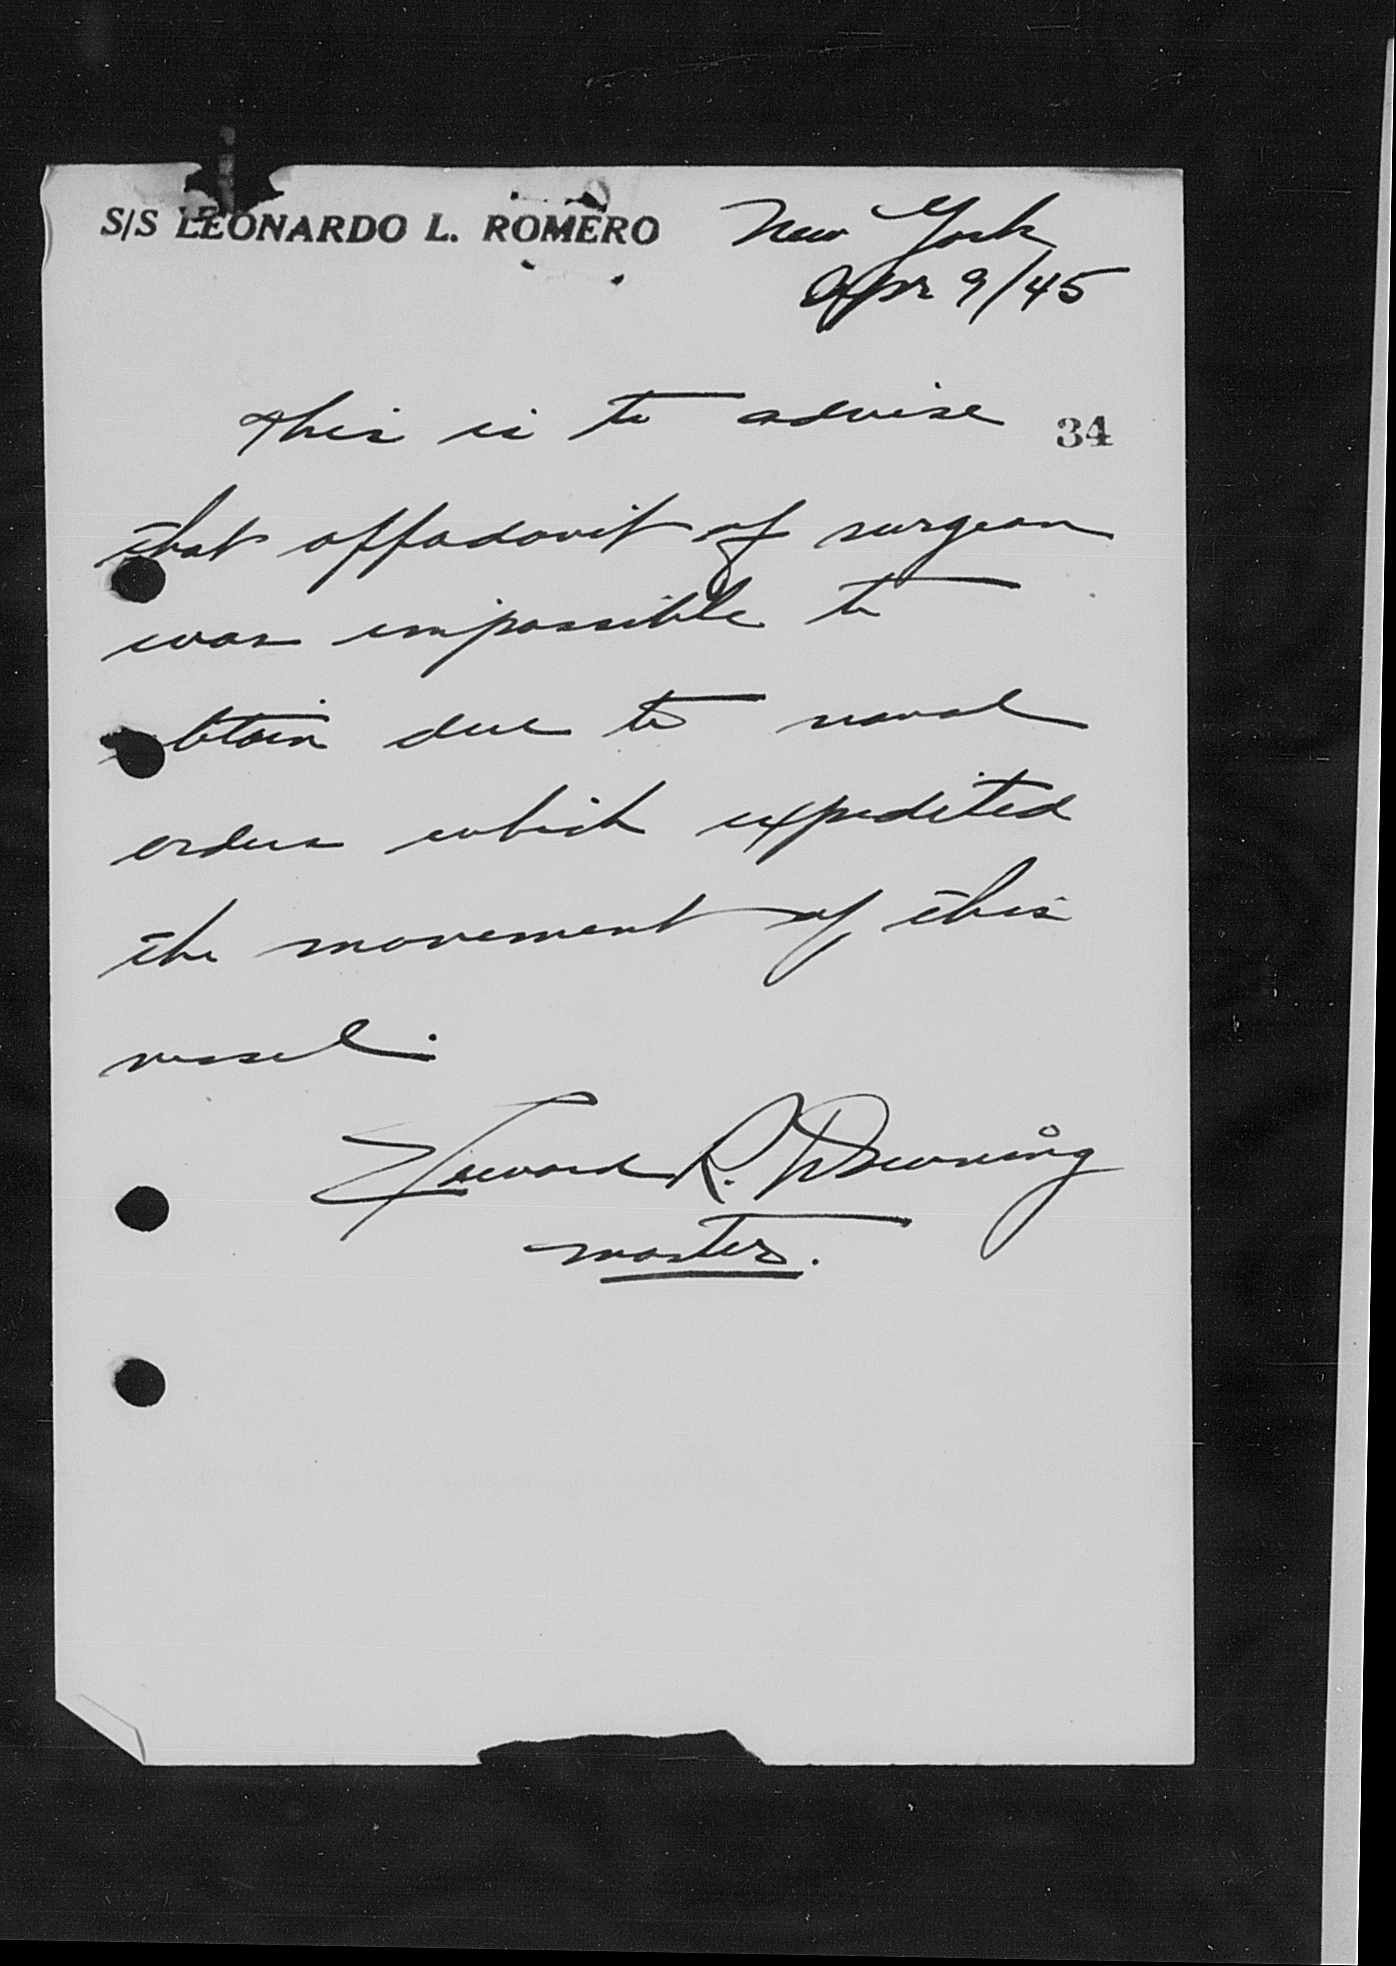 S/S LEONARDO L. ROMERO New York
Apr 9/45
This is to advise
34
that affadavit of surgeon
was impossible to
obtain due to naval
orders which expedited
the movement of this
vessel.
R. Downing
master.